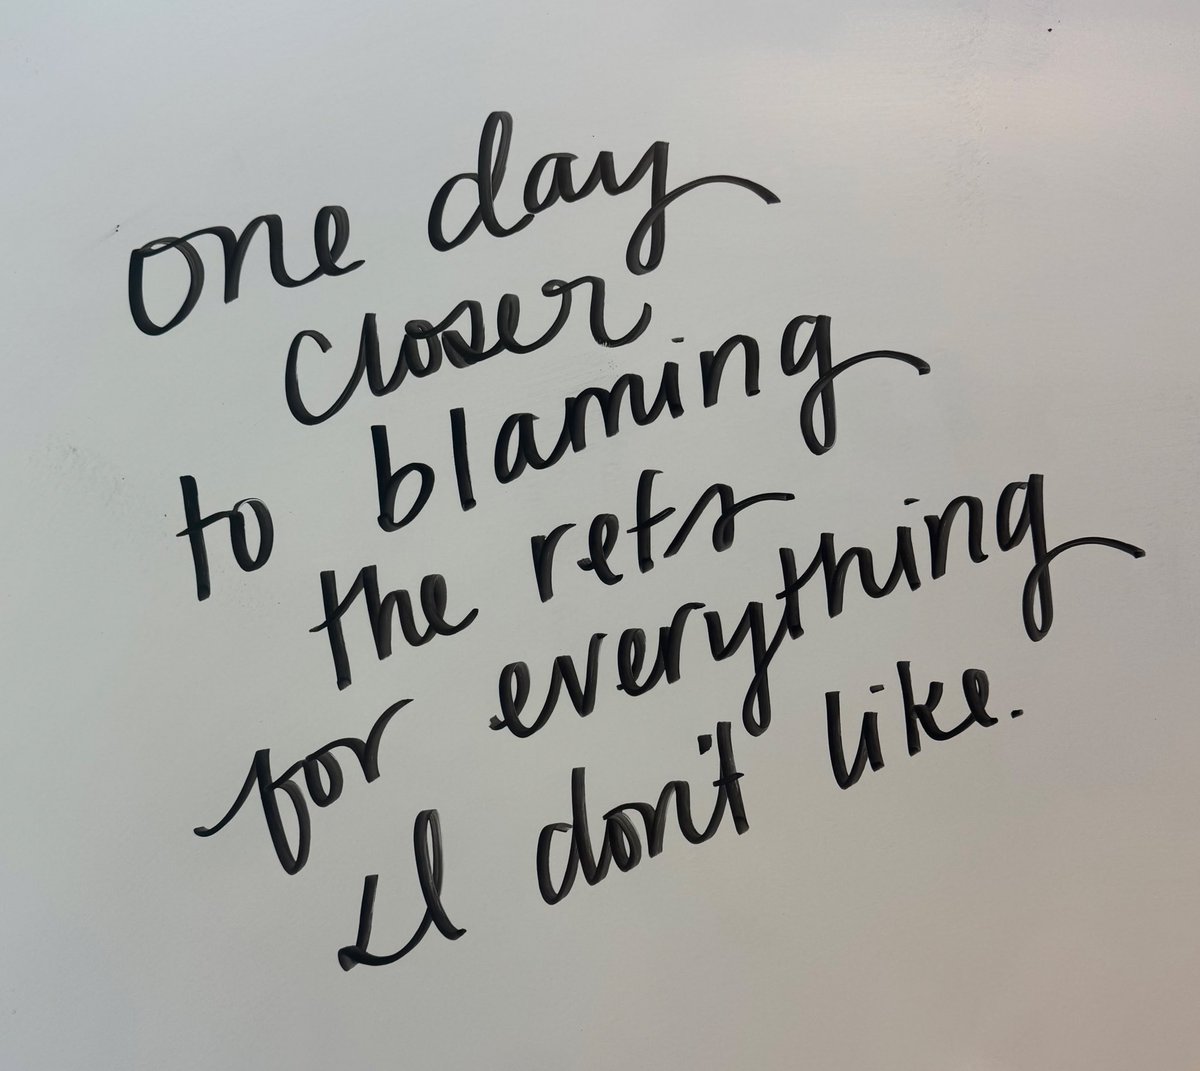 one day
closer
to blaming
the refs
for everything
I don't like.